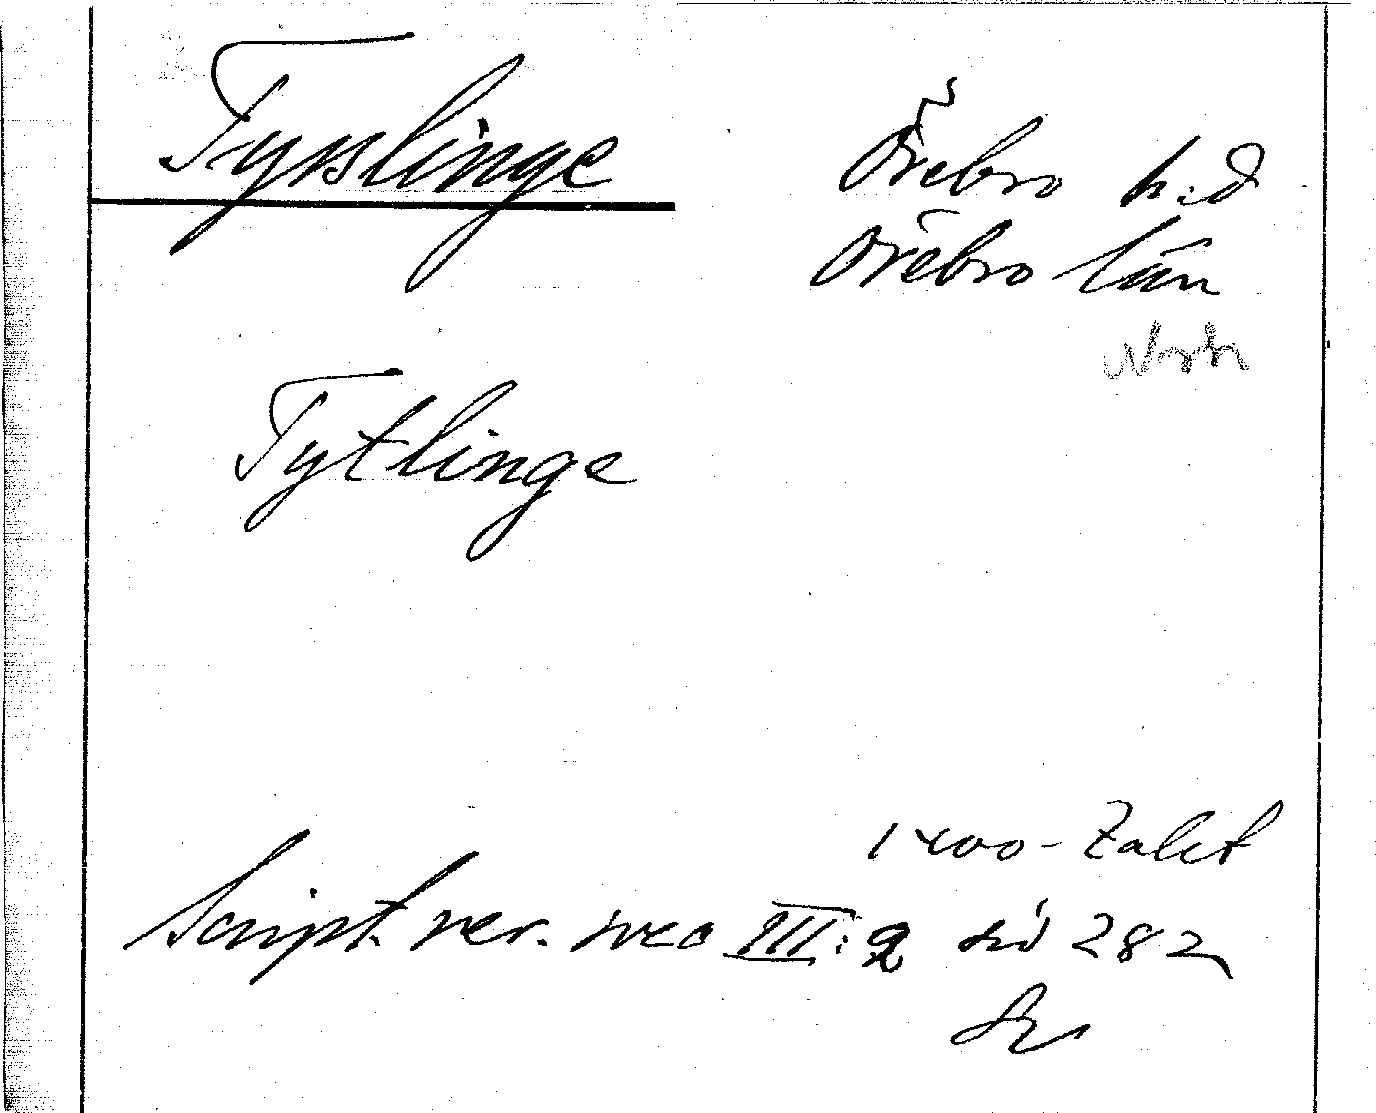 Tysslinge
Örebro h:d
Örebro län
Tytlinge
1400-talet
Script. rer. svec III: 2 sid 282